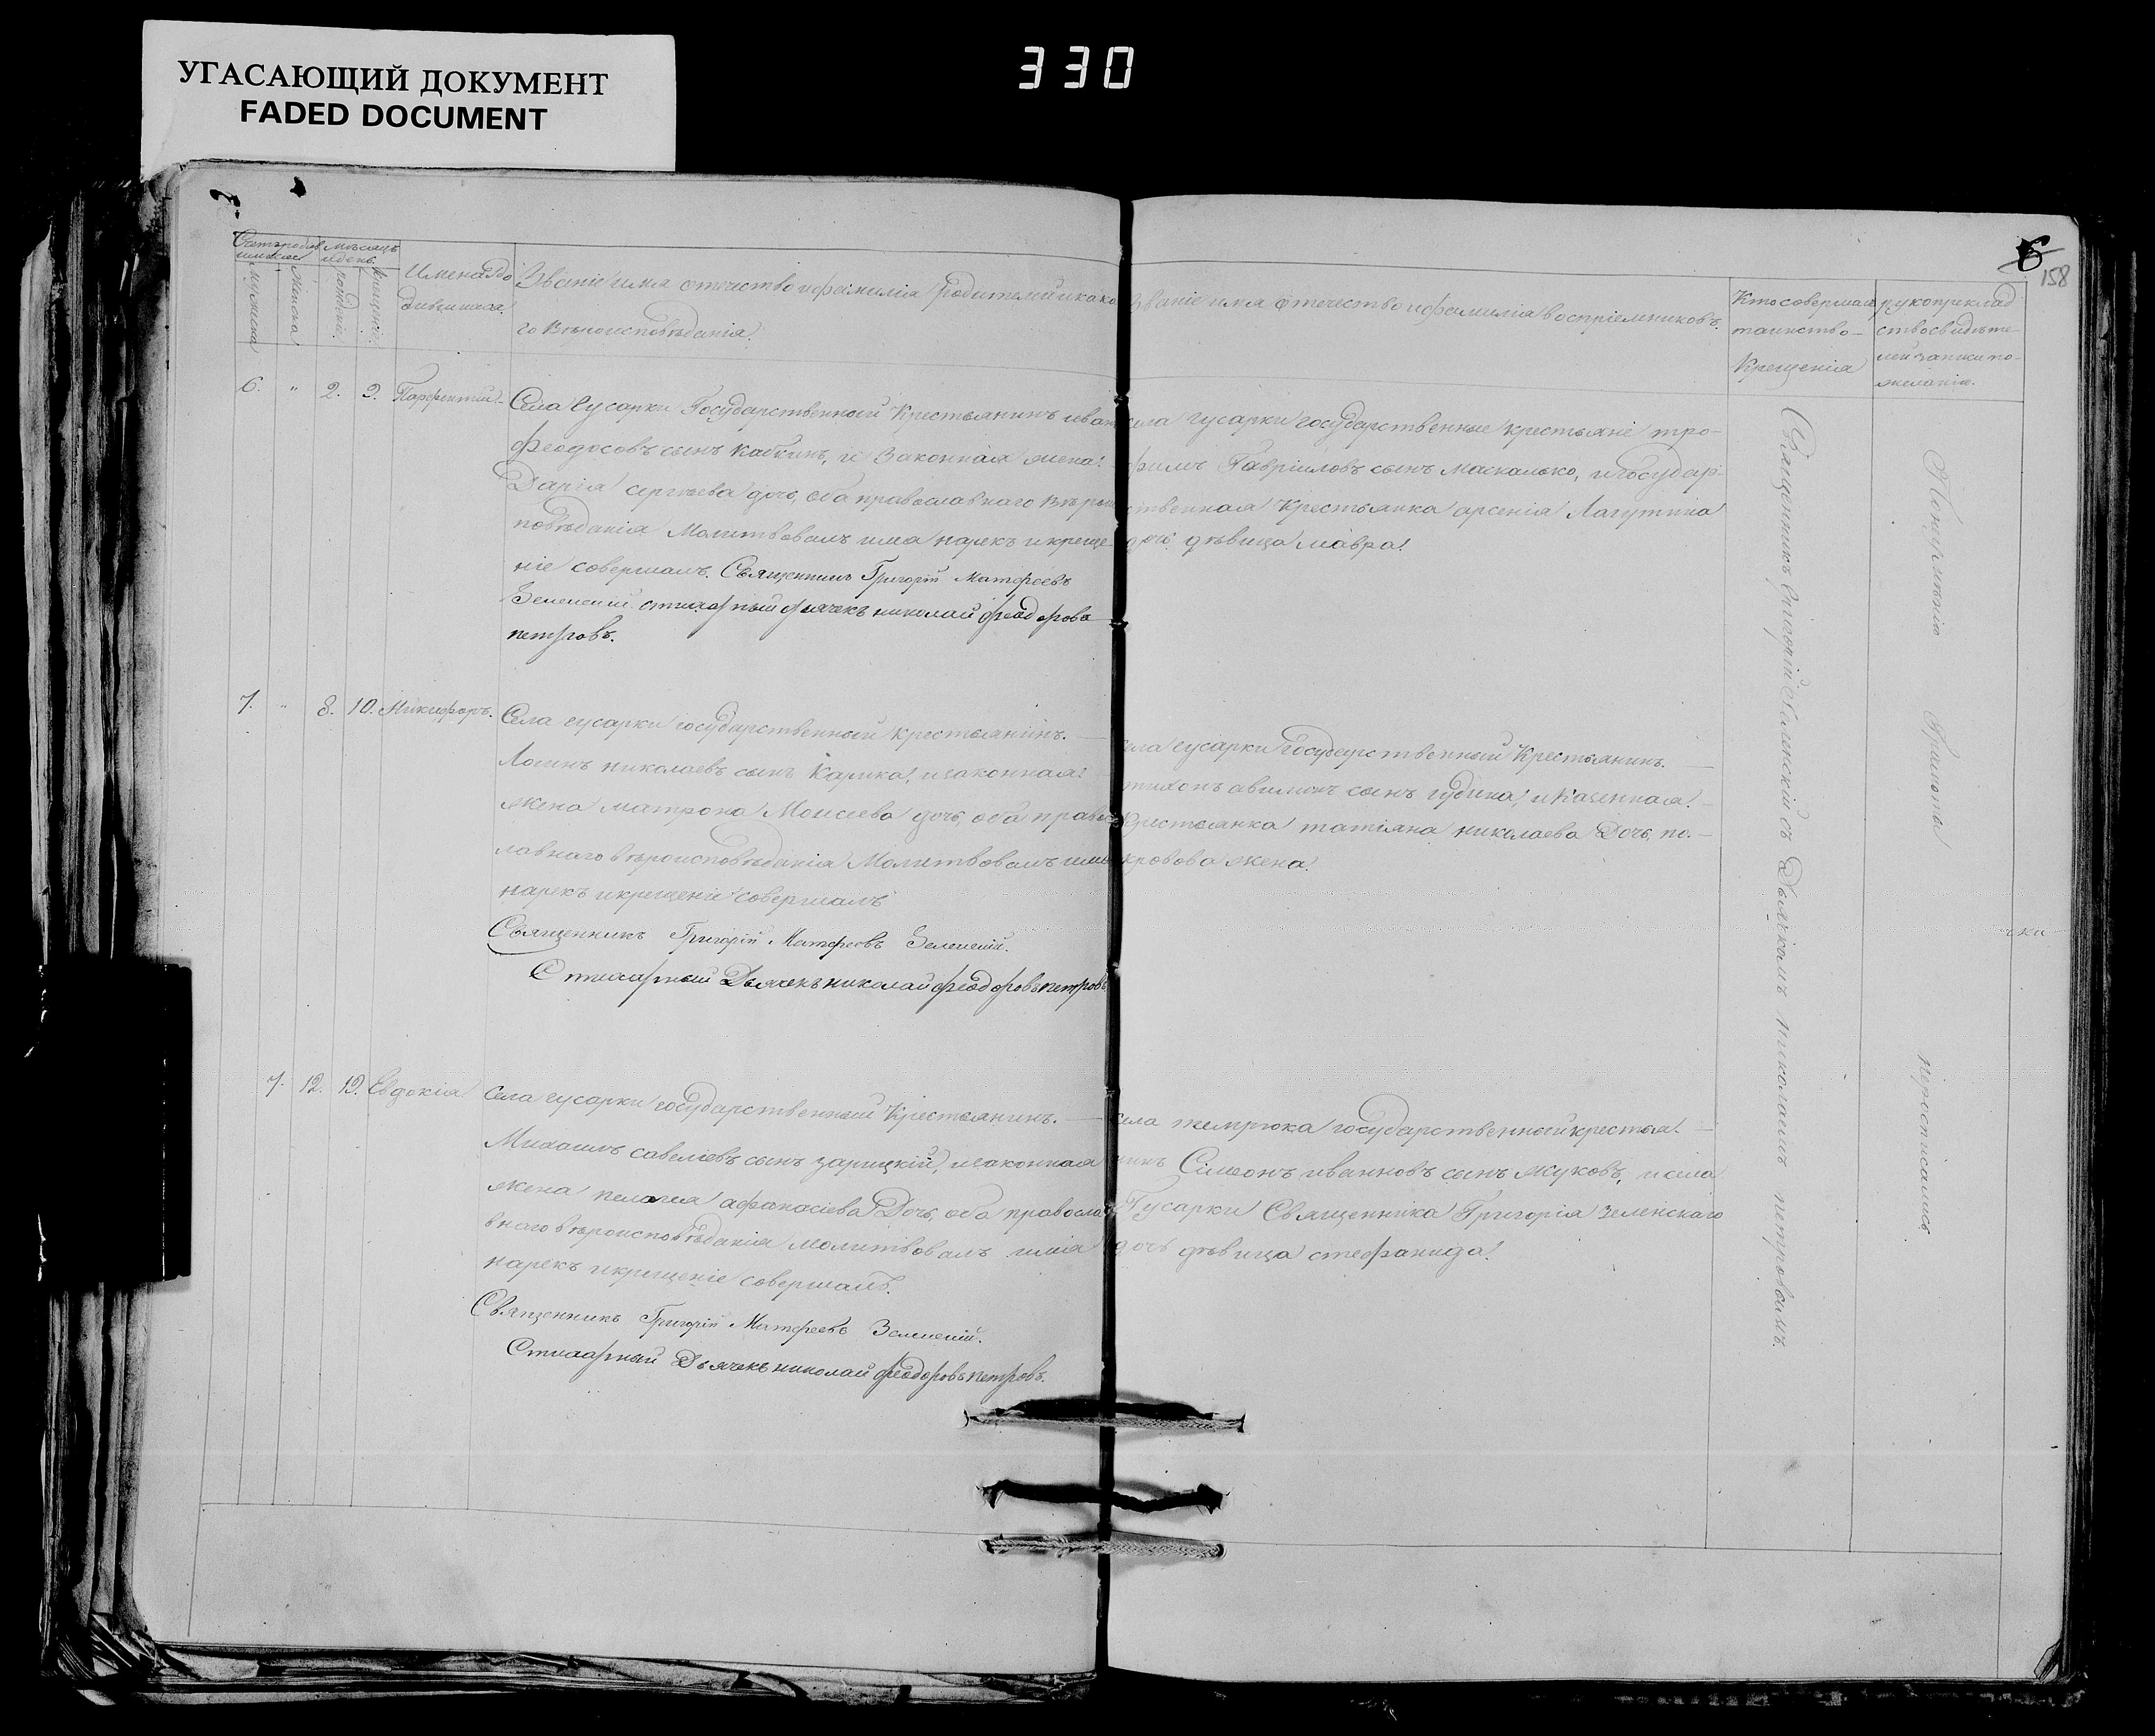 УГАСАЮЩИЙ ДОКУМЕНТ
FADED DOCUMENT
330
6
158
Мѣсяцъ
и день.
Мужеска
Женска
рожденіе.
крещеніе.
Имена Ро
дившихся.
Званіе имя отечество и фамилія родителей и како
го вѣроисповѣданія.
Званіе имя отечество и фамилія воспріемниковъ.
Кто совершал
таинство
Крещенія
рукоприклад
ство свидѣте
лей записи по
желанію.
6. " 2. 2. Парфентій
Села Гусарки Государственный Крестьянинъ иван
феодосовъ сынъ Кабкинъ, и Законная жена
Дарія сергѣева дочь, оба православнаго вѣрои
повѣданія Молитвовалъ имя нарекъ и креще
ніе совершалъ. Священникъ Григорій Матфеевъ
Зеленскій стихарный дьячекъ николай феодоровъ
петровъ.
села гусарки государственные крестьяне тро-
фимъ Гавріиловъ сынъ Маскалько, и государ
ственная Крестьянка арсенія Лагутина
дочь дѣвица мавра.
7. " 8. 10. Никифоръ.
Села гусарки государственный крестьянинъ.
Логинъ николаевъ сынъ Карика, и законная
жена матрона Моисеева дочь, оба правос
лавнаго вѣроисповѣданія Молитвовалъ имя
нарекъ и крещеніе совершалъ
Священникъ Григорій Матфеевъ Зеленскій.
Стихарный Дьячекъ николай феодоровъ петровъ
села гусарки Государственный Крестьянинъ.
тихонъ сынъ гудина, и Казенная
Крестьянка татіана николаева Дочь, по-
кровова жена.
7. 12. 12. Евдокія
села гусарки государственный Крестьянинъ.
Михаилъ савеліевъ сынъ зарицкій, и законная
жена пелагея афанасіева Дочь, оба правосла
внаго вѣроисповѣданія молитвовалъ имя
нарекъ и крещеніе совершалъ.
Священникъ Григорій Матфеевъ Зеленскій.
Стихарный Дьячекъ николай феодоровъ петровъ.
села темрюка государственный крестья
нинъ Сімеонъ ивановъ сынъ жуковъ, и села
Гусарки Священника Григорія Зеленскаго
дочь дѣвица стефанида.
Священникъ Григорій Зеленскій съ Дьячкомъ николаемъ петровымъ.
По неумѣнію Грамоты